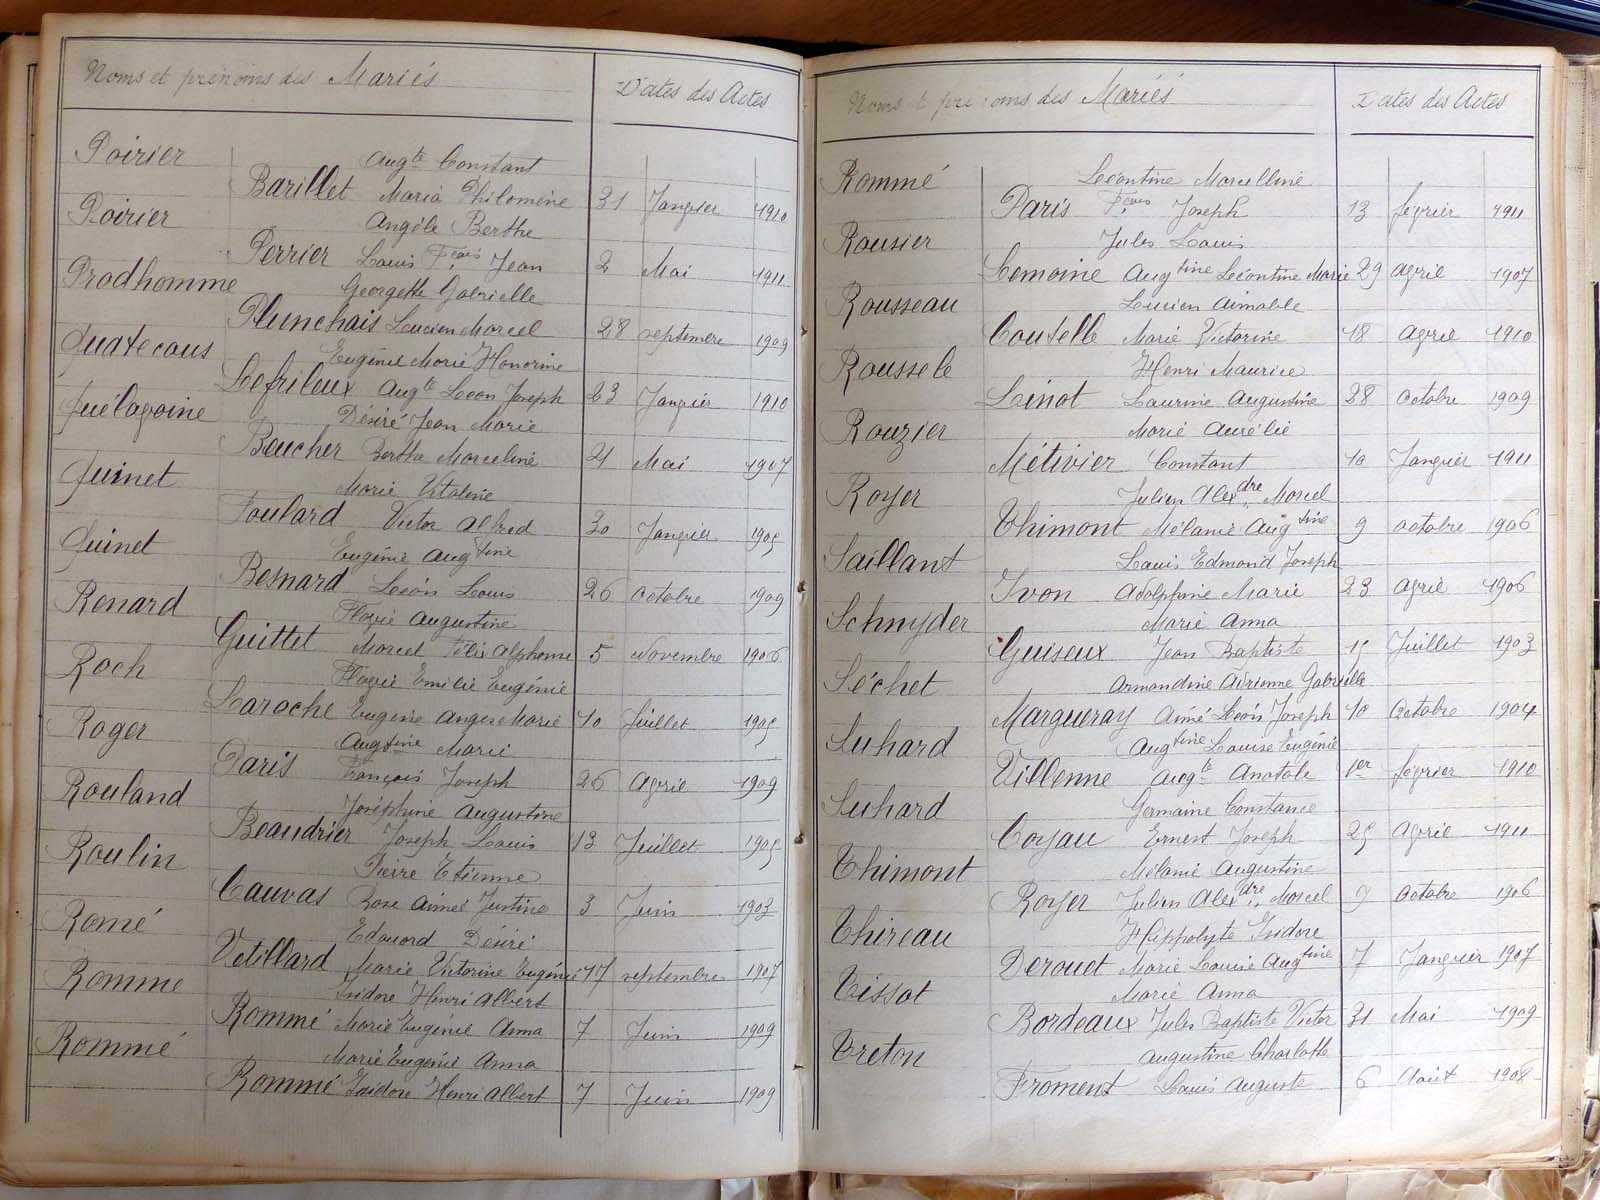 Noms et prénoms des Mariés Dates des Actes
Poirier Augte Constant
Barillet Maria Philomène 31 Janvier 1910
Poirier Angèle Berthe
Perrier Louis Fçois Jean 2 Mai 1911
Prodhomme Georgette Gabrielle
Plunchais Lucien Marcel 28 septembre 1909
Quatecous Eugénie Marie Honorine
Lefrileux Augte Léon Joseph 23 Janvier 1910
Quélavoine Désiré Jean Marie
Beucher Berthe Marceline 21 Mai 1907
Quinet Marie Vitaline
Foulard Victor Alfred 30 Janvier 1905
Quinet Eugénie Augtine
Besnard Léon Louis 26 octobre 1909
Renard Flavie Augustine
Guittet Marcel Félix Alphonse 5 Novembre 1906
Roch Flavie Emilie Eugénie
Laroche Eugène Ange Marie 10 Juillet 1905
Roger Augtine Marie
Paris François Joseph 26 Avril 1909
Rouland Joséphine Augustine
Beaudrier Joseph Louis 13 Juillet 1905
Roulin Pierre Etienne
Cauvas Rose Aimée Justine 3 Juin 1903
Romé Edouard Désiré
Vetillard Marie Victorine Eugénie 17 septembre 1907
Romme Isidore Henri Albert
Rommé Marie Eugénie Anna 7 Juin 1909
Rommé Marie Eugénie Anna
Rommé Isidore Henri Albert 7 Juin 1909
Noms et prénoms des Mariés Dates des Actes
Rommé Léontine Marcelline
Paris Fçois Joseph 13 février 1911
Rousier Jules Louis
Lemoine Augtine Léontine Marie 29 Avril 1907
Rousseau Lucien Aimable
Coutelle Marie Victorine 18 Avril 1910
Roussele Henri Maurice
Linot Laurine Augustine 28 octobre 1909
Rouzier Marie Aurélie
Métivier Constant 10 Janvier 1911
Royer Julien Alexdre Marcel
Thimont Mélanie Augtine 9 octobre 1906
Saillant Louis Edmond Joseph
Ivon Adolphine Marie 23 Avril 1906
Schnyder Marie Anna
Guiseux Jean Baptiste 15 Juillet 1903
Séchet Armandine Adrienne Gabrielle
Margueray Aimé Léon Joseph 10 Octobre 1904
Suhard Augtine Louise Eugénie
Villenne Augte Anatole 1er février 1910
Suhard Germaine Constance
Coyau Ernest Joseph 25 Avril 1911
Thimont Mélanie Augustine
Royer Julien Alexdre Marcel 9 Octobre 1906
Thireau Hippolyte Isidore
Derouet Marie Louise Augtine 7 Janvier 1907
Tissot Marie Anna
Bordeaux Jules Baptiste Victor 31 Mai 1909
Treton Augustine Charlotte
Froment Louis Auguste 6 Août 1908